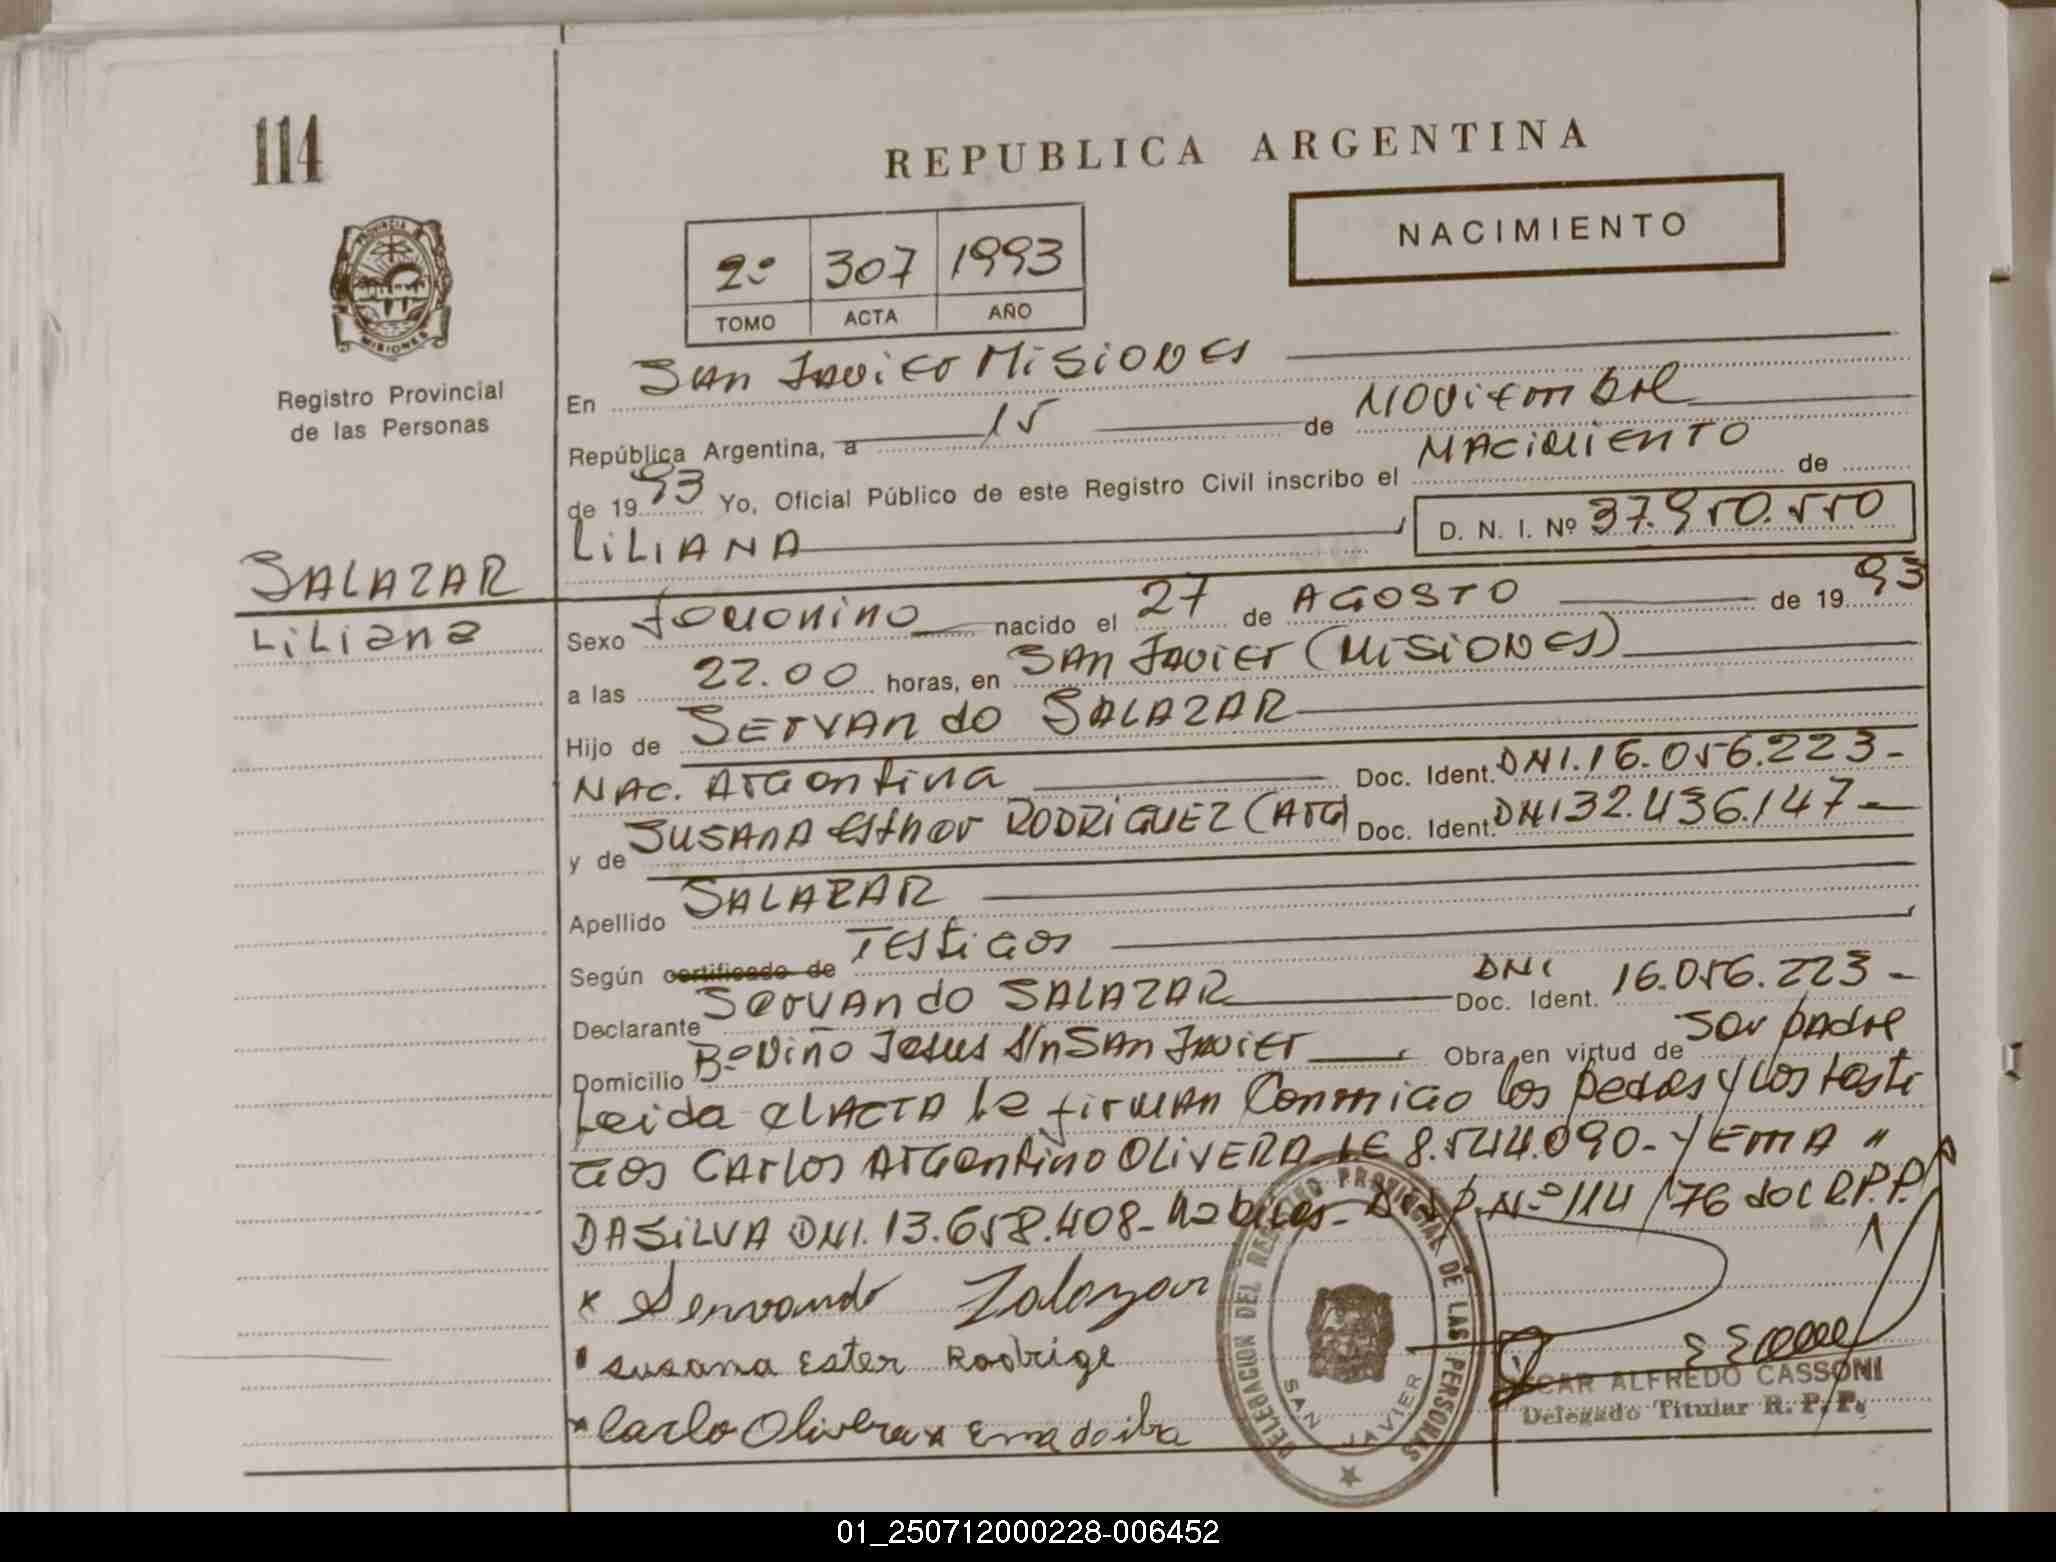 114
REPUBLICA ARGENTINA
NACIMIENTO
2º 307 1993
TOMO ACTA AÑO
PROVINCIA DE
MISIONES
Registro Provincial
de las Personas
SALAZAR
Liliana
En San Javier Misiones
República Argentina, a 15 de Noviembre
de 19 93 Yo, Oficial Público de este Registro Civil inscribo el NACimiENTO de
LiLiANA D. N. I. Nº 37.950.550
Sexo femenino nacido el 27 de AGOSTO de 19 93
a las 22.00 horas, en SAn Javier (MiSiONES)
Hijo de SErVAndo SALAZAR
NAC. Argentina Doc. Ident. DNI. 16.056.223-
y de SUSAnA Esther RODRiGUEZ (ArG) Doc. Ident. DNI 32.436.147-
Apellido SALAZAR
Según certificado de TEStiGos
Declarante SerVAndo SALAZAR Doc. Ident. DNI 16.056.223-
Domicilio Bº Niño Jesus s/n SAn Javier Obra en virtud de Ser padre
Leida el ACTA la firman Conmigo los padres y los testi
gos CArlos ArGentino OLiVERA LE 8.544.090- y EmA "
DA SiLVA DNI. 13.658.408- Habiles- Disp. Nº 114/76 del R.P.P.
x Servando Zalazar
susana Ester Rodrige
x Carlo Olivera x Ema
DELEGACION DEL REGISTRO PROVINCIAL DE LAS PERSONAS
SAN JAVIER
OSCAR ALFREDO CASSONI
Delegado Titular R. P. P.
01_250712000228-006452